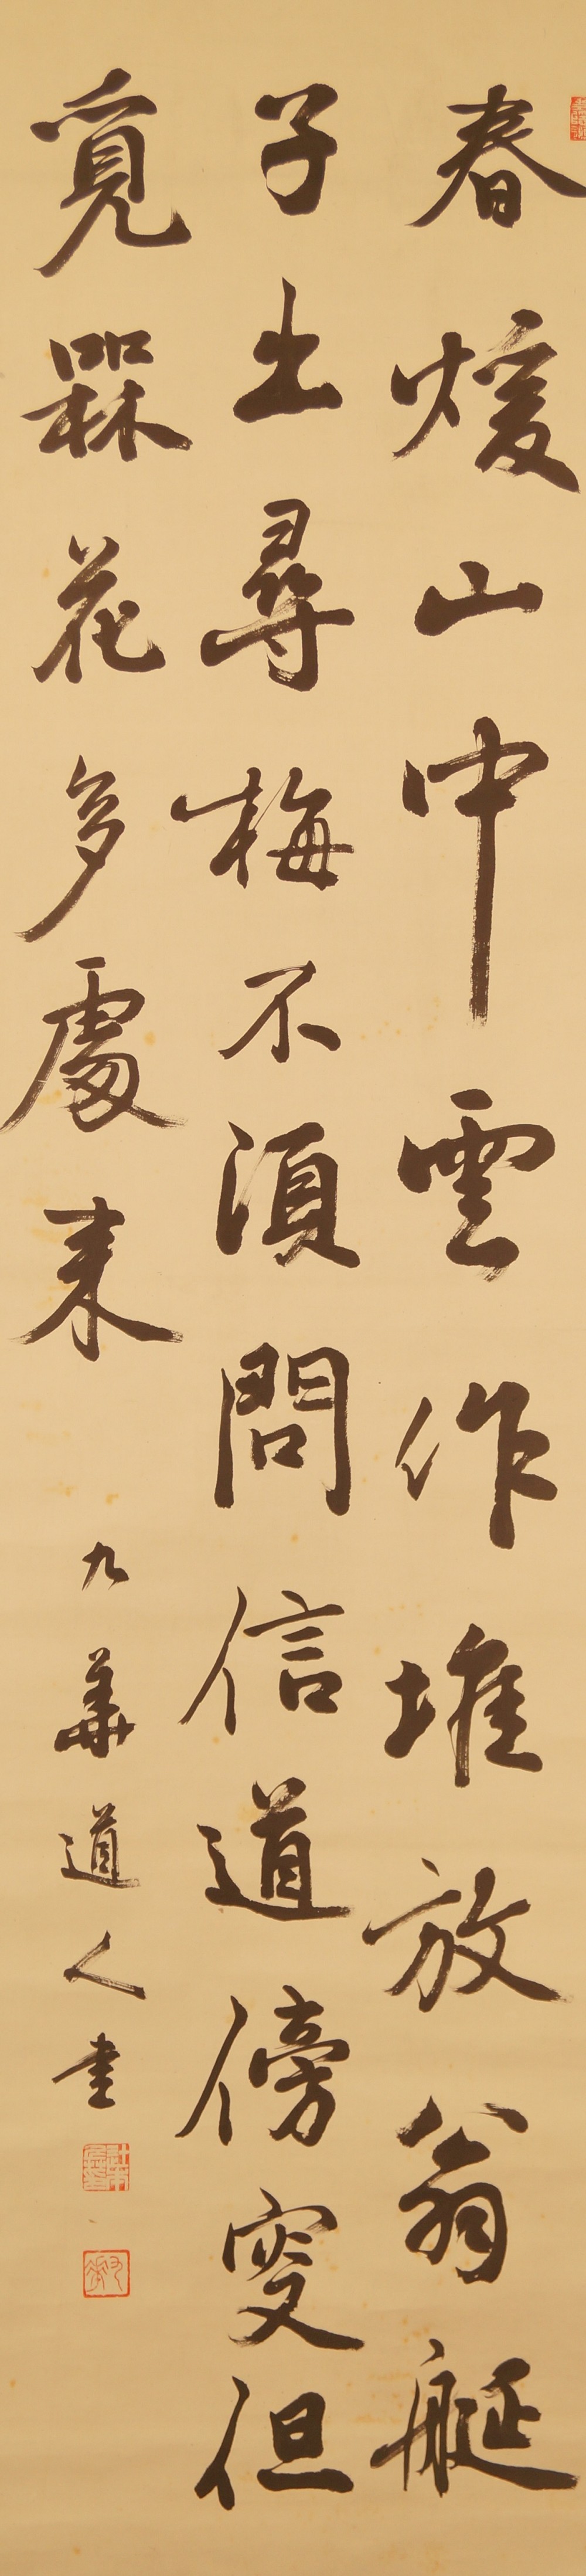 春煖山中雲作堆放翁艇
子出尋梅不須問信道傍叜但
覓槑花多處来
九華道人書